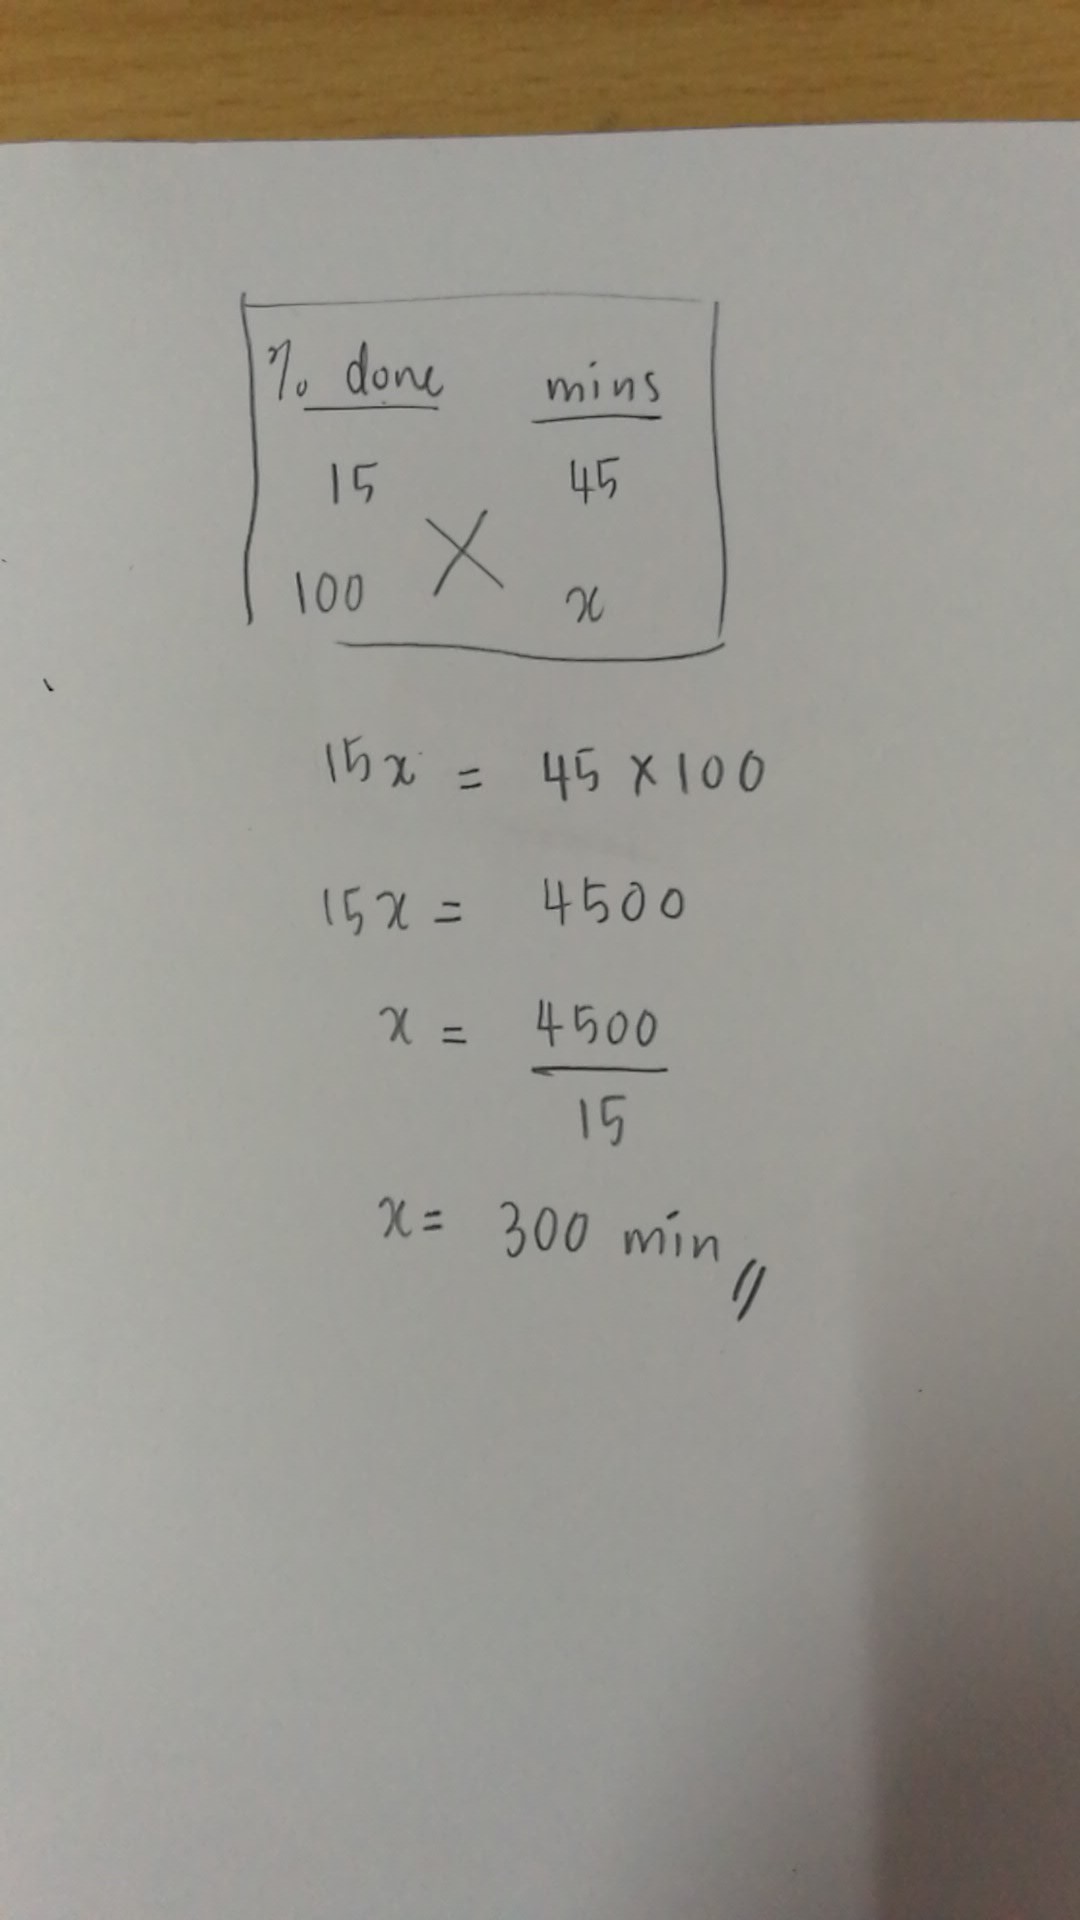 % done mins
15 45
100 x
15x = 45 × 100
15x = 4500
x = 4500
15
x = 300 min